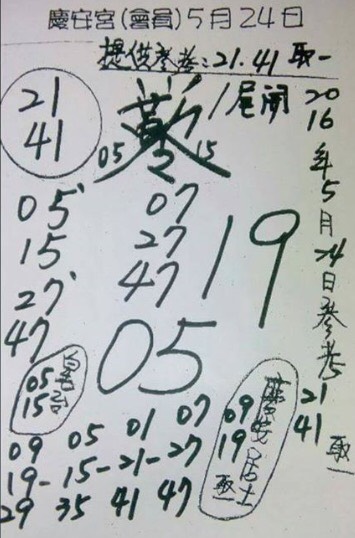 慶安宮(會員)5月24日
提供參考:21.41 取一
21
41
1尾開
05 15
2016年5月24日參考
21
41
取
05
15
27
47
07
27
47
19
05
05
15
09 05 01 07
19-15-21-27
29 35 41 47
09
19
居士
取